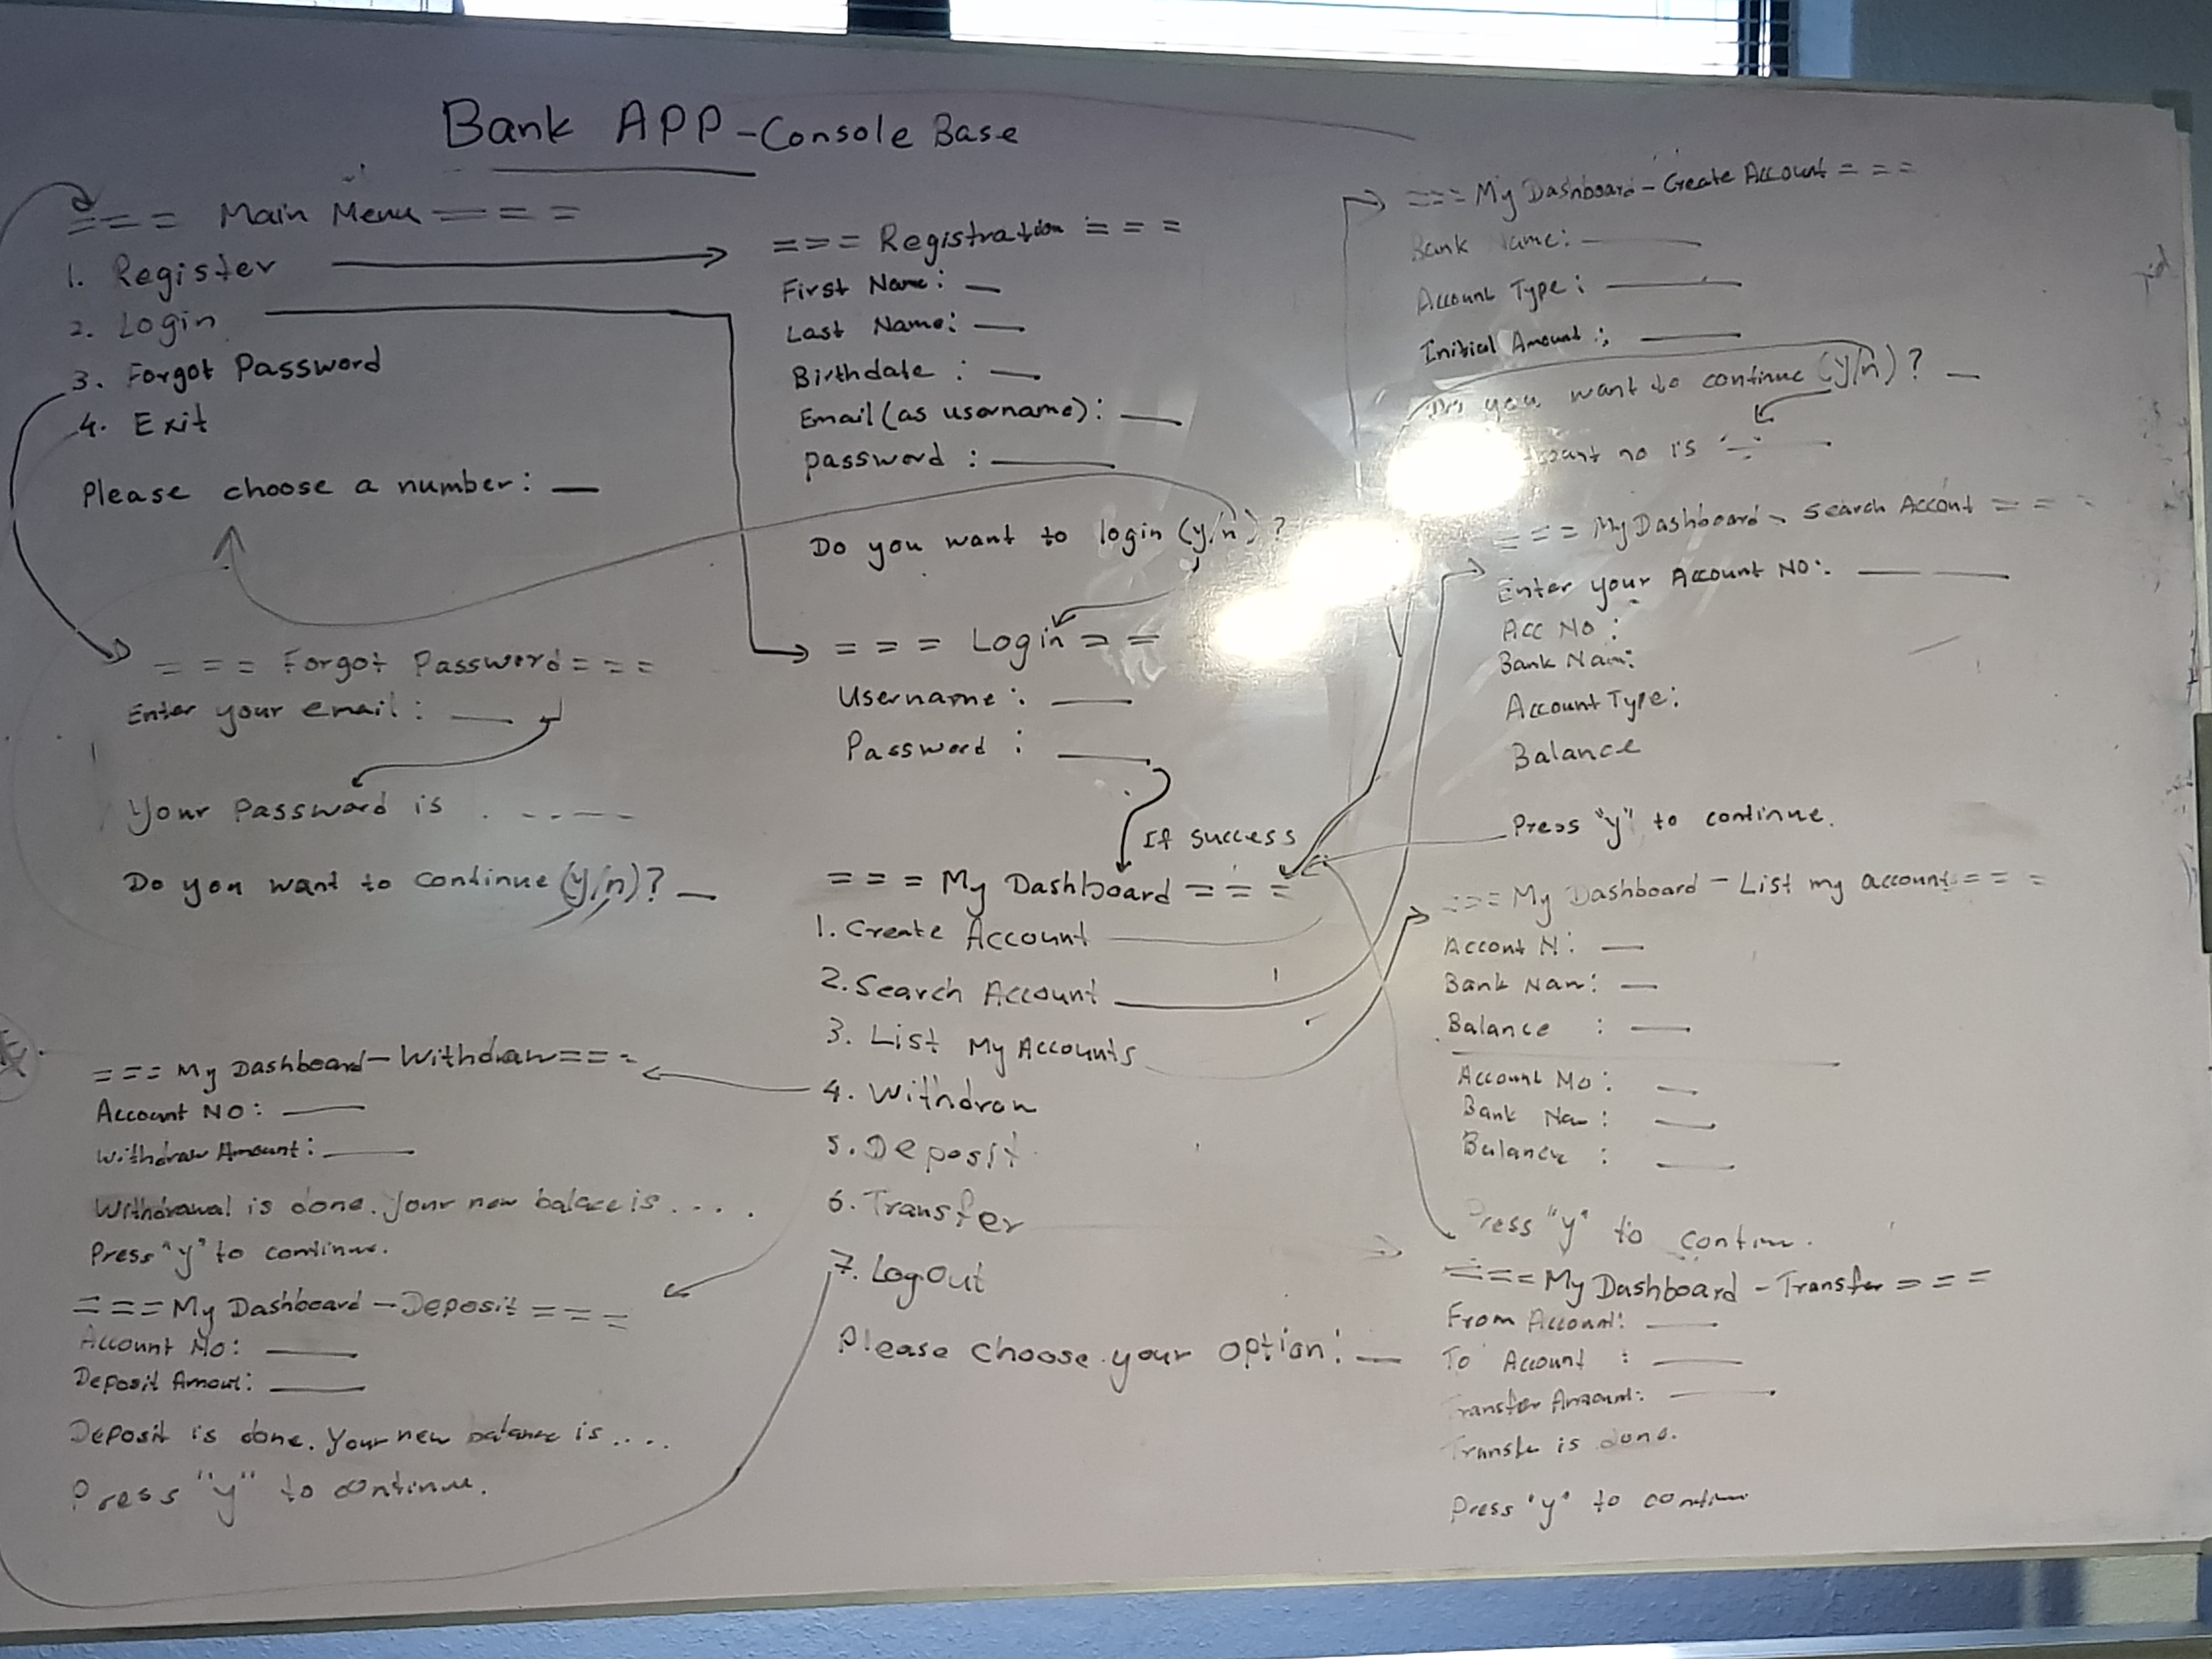 Bank APP - Console Base
=== Main Menu ===
1. Register
2. Login
3. Forgot Password
4. Exit
Please choose a number: __
=== Forgot Password ===
Enter your email: __
Your Password is . - - - -
Do you want to continue (y/n)? __
=== My Dashboard - Withdraw ===
Account NO: __
Withdraw Amount: __
Withdrawal is done. Your new balace is . . . .
Press "y" to continue.
=== My Dashboard - Deposit ===
Account No: __
Deposit Amout: __
Deposit is done. Your new balance is ....
Press "y" to continue.
=== Registration ===
First Name: __
Last Name: __
Birthdate : __
Email (as username): __
password : __
Do you want to login (y/n)?
=== Login ==
Username: __
Password : __
If success
=== My Dashboard ===
1. Create Account
2. Search Account
3. List My Accounts
4. Withdraw
5. Deposit
6. Transfer
7. LogOut
Please choose your option: __
=== My Dashboard - Create Account ===
Bank Name: __
Account Type: __
Initial Amount: __
Do you want to continue (y/n)? __
no is __
=== My Dashboard - Search Accont ===
Enter your Account NO: __ __
Acc No :
Bank Nam:
Account Type:
Balance
Press "y" to continue.
=== My Dashboard - List my account ===
Accont N: __
Bank Nam: __
Balance : __
Account No: __
Bank Na : __
Balance : __
Press "y" to contin.
=== My Dashboard - Transfer ===
From Account: __
To Account : __
Transfer Amount: __
Transfe is done.
Press "y" to contin